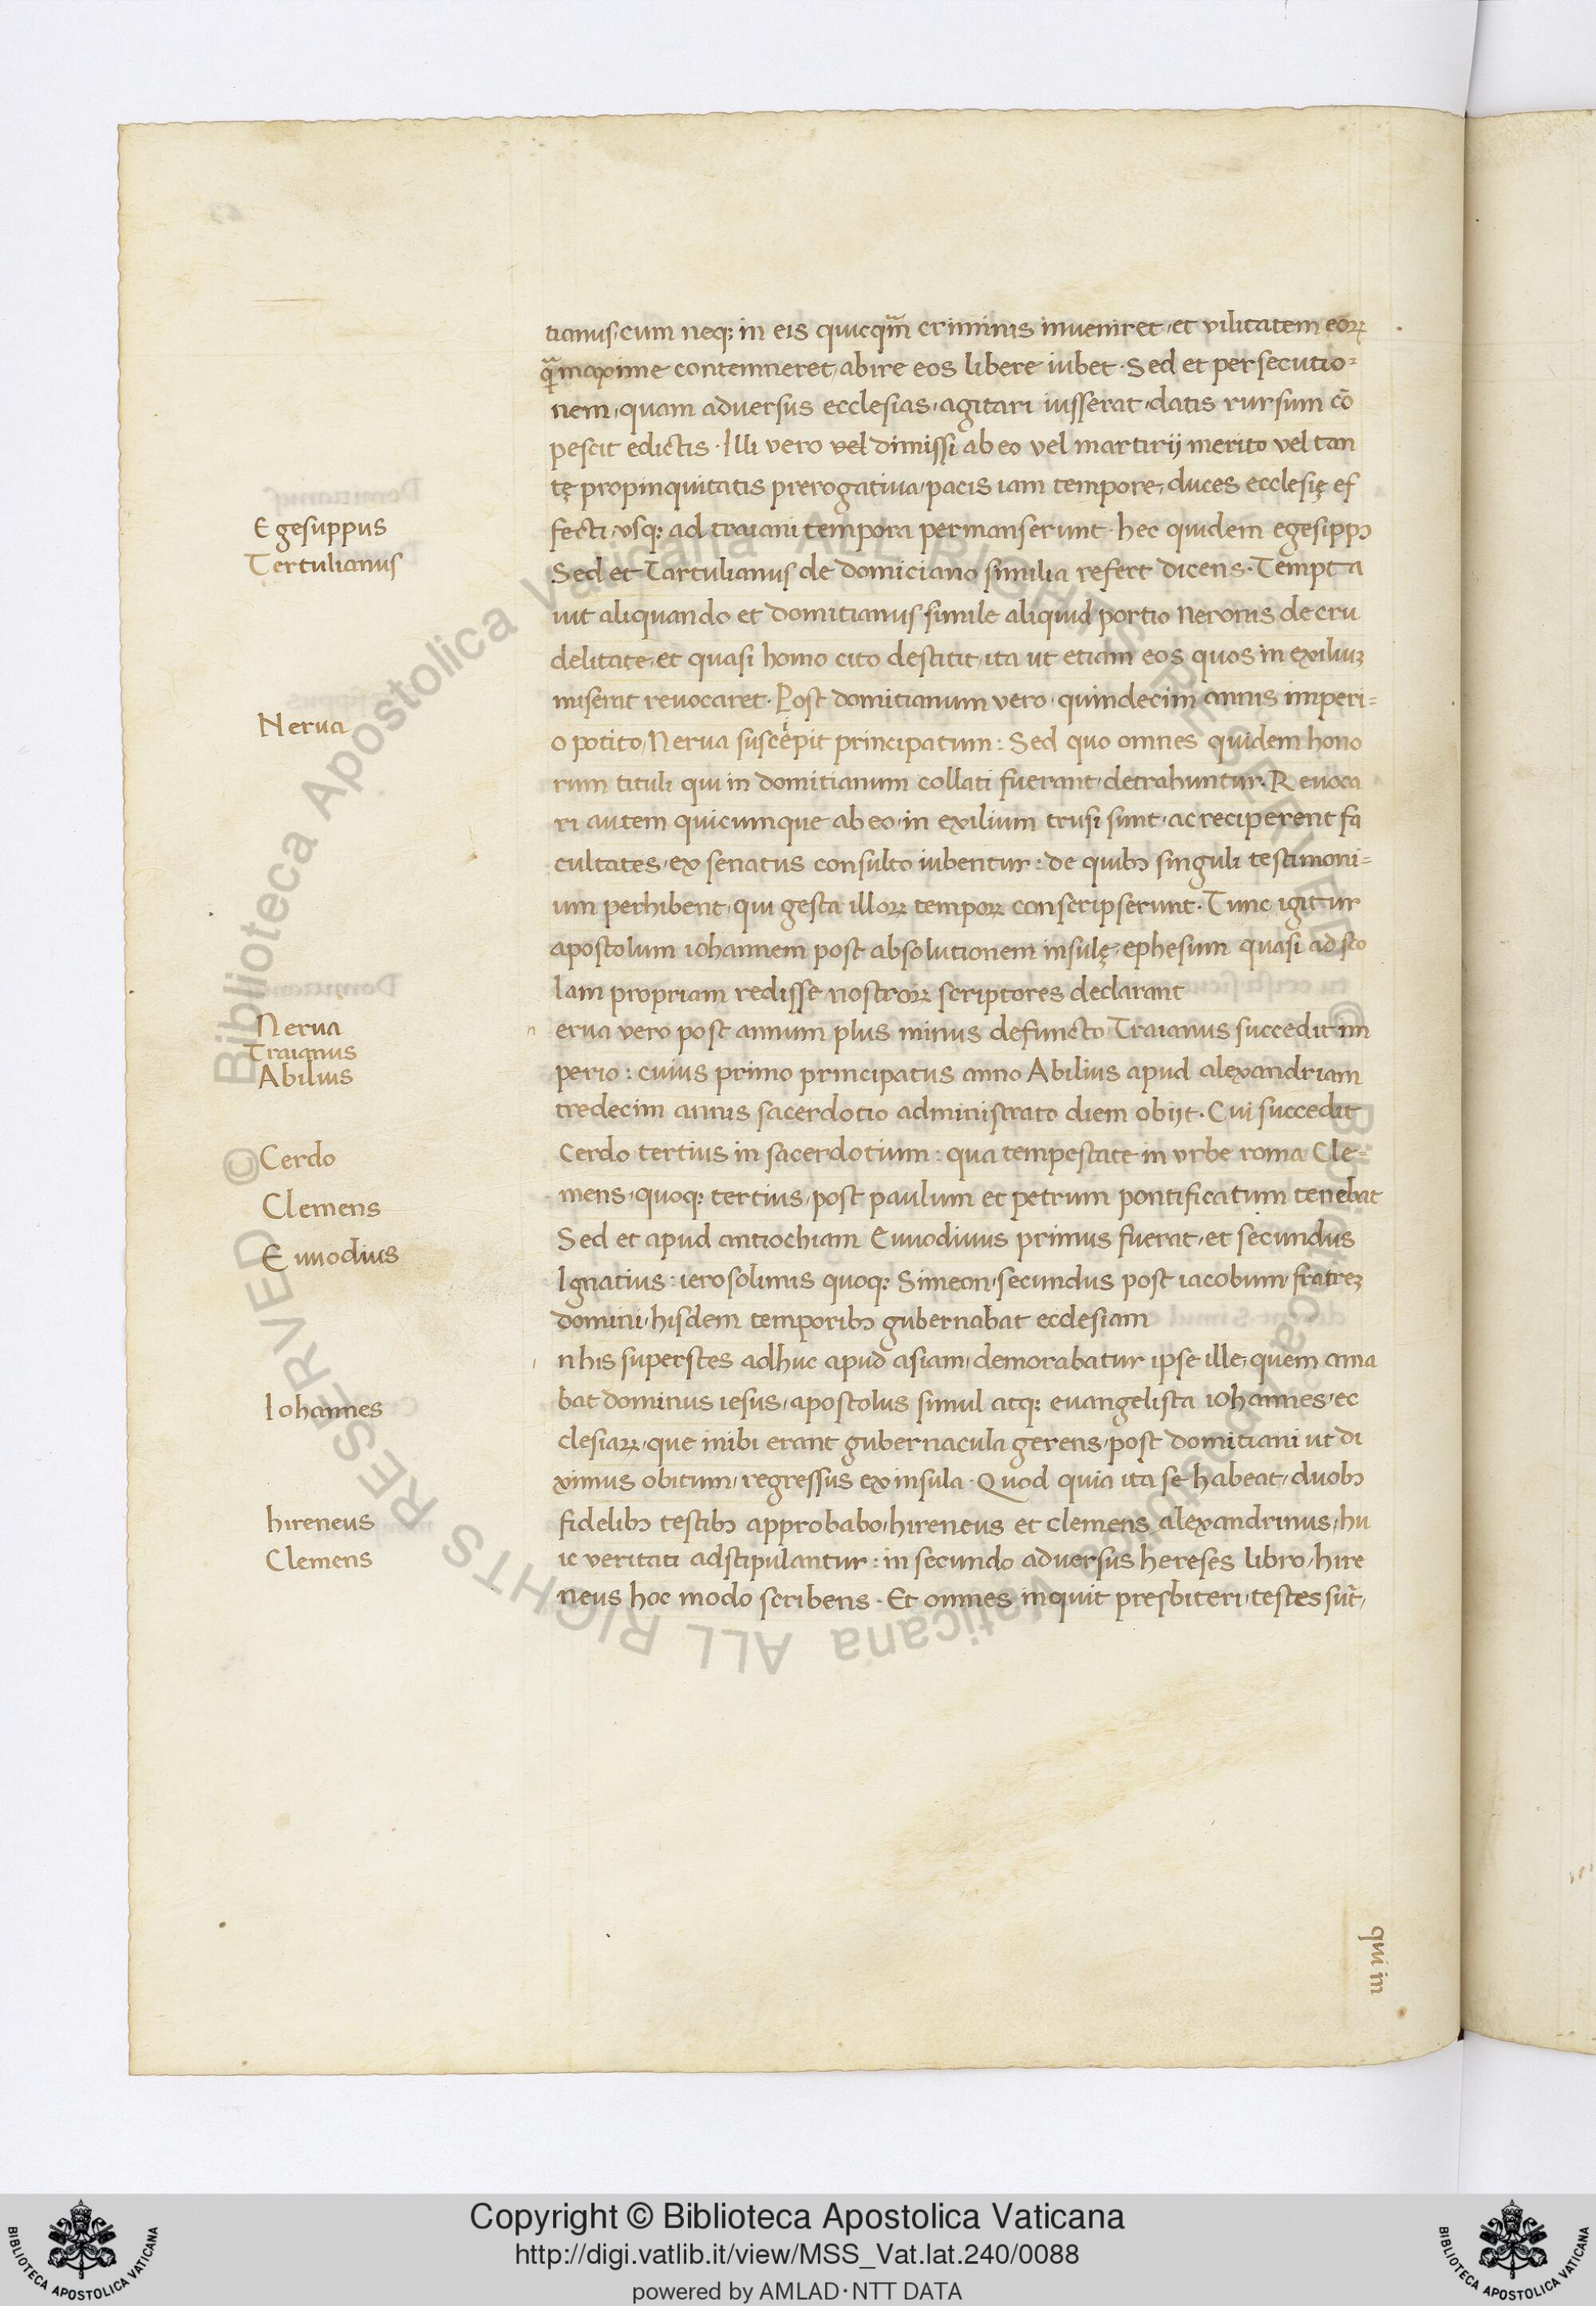 tianus, cum neq; in eis quicqm̃ criminis inueniret, et vilitatem eoꝝ
qͣmaxime contemneret, abire eos libere iubet. Sed et persecutio=
nem, quam adversus ecclesias, agitari iusserat, datis rursum cõ
pescit edictis. Illi vero vel dimissi ab eo vel martirij merito vel tan
tę propinquitatis prerogativa, pacis iam tempore, duces ecclesię ef
Egesuppus
fecti, usq; ad traiani tempora permanserunt. hec quidem egesippꝯ
Tertulianus
Sed et Tartulianus de domiciano similia refert dicens. Tempta
uit aliquando et domitianus simile aliquid portio neronis de cru
delitate, et quasi homo cito destitit, ita ut etiam eos quos in exiliuꝫ
miserat reuocaret. Post domitianum vero, quindecim annis imperi=
Nerua
o potito, Nerua suscepit principatum: Sed quo omnes quidem hono
rum tituli qui in domitianum collati fuerant, detrahuntur. Reuoca
ri autem quicumque ab eo, in exilium trusi sunt, ac reciperent fa
cultates, ex senatus consulto iubentur: de quibꝯ singuli testimoni=
um perhibent, qui gesta illoꝝ tempoꝝ conscripserunt. Tunc igitur
apostolum iohannem post absolutionem insulę, ephesum quasi ad sco
lam propriam redisse nostroꝝ scriptores declarant
Nerua
n erua vero post annum plus minus defuncto Traianus succedit im
Traianus
Abilius
perio: cuius primo principatus anno Abilius apud alexandriam
tredecim annis sacerdotio administrato diem obijt. Cui succedit
Cerdo
Cerdo tertius in sacerdotium: qua tempestate in vrbe roma Cle=
Clemens
mens, quoq; tertius, post paulum et petrum pontificatum tenebat
Sed et apud antiochiam Euuodiuus primus fuerat, et secundus
Euuodius
Ignatius: ierosolimis quoq; Simeon, secundus post iacobum, fratreꝫ
domini, hisdem temporibꝯ gubernabat ecclesiam
i n his superstes adhuc apud asiam, demorabatur ipse ille, quem ama
Iohannes
bat dominus iesus, apostolus simul atq; euangelista iohannes, ec
clesiaꝝ, que inibi erant gubernacula gerens, post domitiani ut di
ximus obitum, regressus ex insula. Quod quia ita se habeat, duobꝯ
hireneus
fidelibꝯ testibꝯ approbabo, hireneus et clemens alexandrinus, hu
Clemens
ic veritati adstipulantur: in secundo aduersus hereses libro, hire
neus hoc modo scribens. Et omnes inquit presbiteri, testes sũt,
qui in
Biblioteca Apostolica Vaticana ALL RIGHTS RESERVED ©
Copyright © Biblioteca Apostolica Vaticana
http://digi.vatlib.it/view/MSS_Vat.lat.240/0088
powered by AMLAD·NTT DATA
BIBLIOTECA APOSTOLICA VATICANA
BIBLIOTECA APOSTOLICA VATICANA